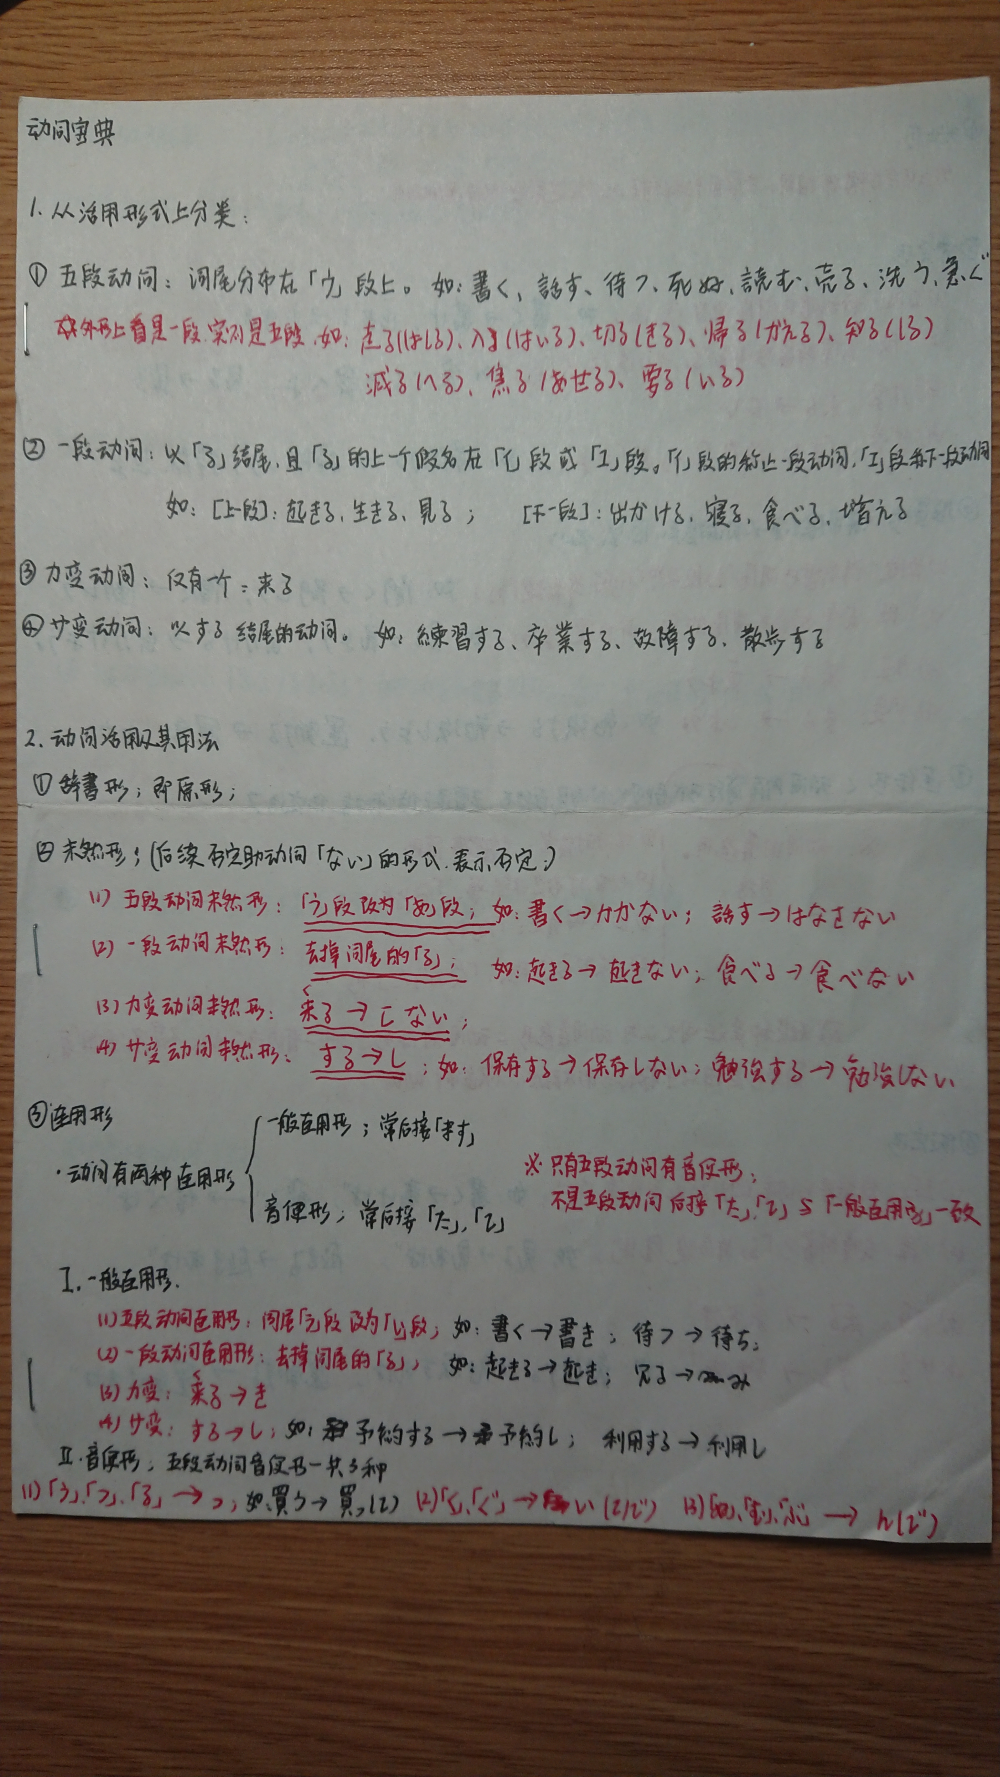 动词宝典
1. 从活用形式上分类：
① 五段动词：词尾分布在「う」段上。如：書く、話す、待つ、死ぬ、読む、売る、洗う、急ぐ
外形上看是一段，实则是五段，如：走る(はしる)、入る(はいる)、切る(きる)、帰る(かえる)、知る(しる)
減る(へる)、焦る(あせる)、要る(いる)
② 一段动词：以「る」结尾，且「る」的上一个假名在「イ」段或「エ」段。「イ」段的称上一段动词，「エ」段称下一段动词
如：[上一段]：起きる、生きる、見る； [下一段]：出かける、寝る、食べる、増える
③ カ变动词：仅有一个：来る
④ サ变动词：以する结尾的动词。如：練習する、卒業する、故障する、散歩する
2. 动词活用及其用法
① 辞書形；即原形；
② 未然形；(后续否定助动词「ない」的形式，表示否定；)
(1) 五段动词未然形：「う」段改为「あ」段；如：書く→かかない；話す→はなさない
(2) 一段动词未然形：去掉词尾的「る」；如：起きる→起きない；食べる→食べない
(3) カ变动词未然形：来る→こない；
く
(4) サ变动词未然形：する→し；如：保存する→保存しない；勉強する→勉強しない
③ 连用形
・动词有两种连用形
一般连用形；常后接「ます」
音便形；常后接「た」、「て」
※ 只有五段动词有音便形；
不是五段动词后接「た」、「て」与「一般连用形」一致
I. 一般连用形.
(1) 五段动词连用形：词尾「う」段改为「い」段；如：書く→書き；待つ→待ち；
(2) 一段动词连用形：去掉词尾的「る」；如：起きる→起き；見る→み
(3) カ变：来る→き
く
(4) サ变：する→し；如：予約する→予約し；利用する→利用し
II. 音便形；五段动词音便形一共3种
(1)「う」、「つ」、「る」→っ；如：買う→買っ(て) (2)「く」、「ぐ」→い(て/で) (3)「ぬ」、「む」、「ぶ」→ん(で)